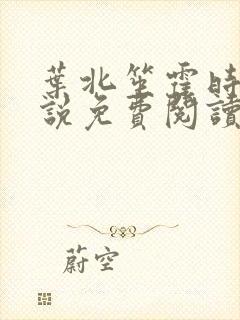 葉北笙霍時
說免費閱讀
蔚空